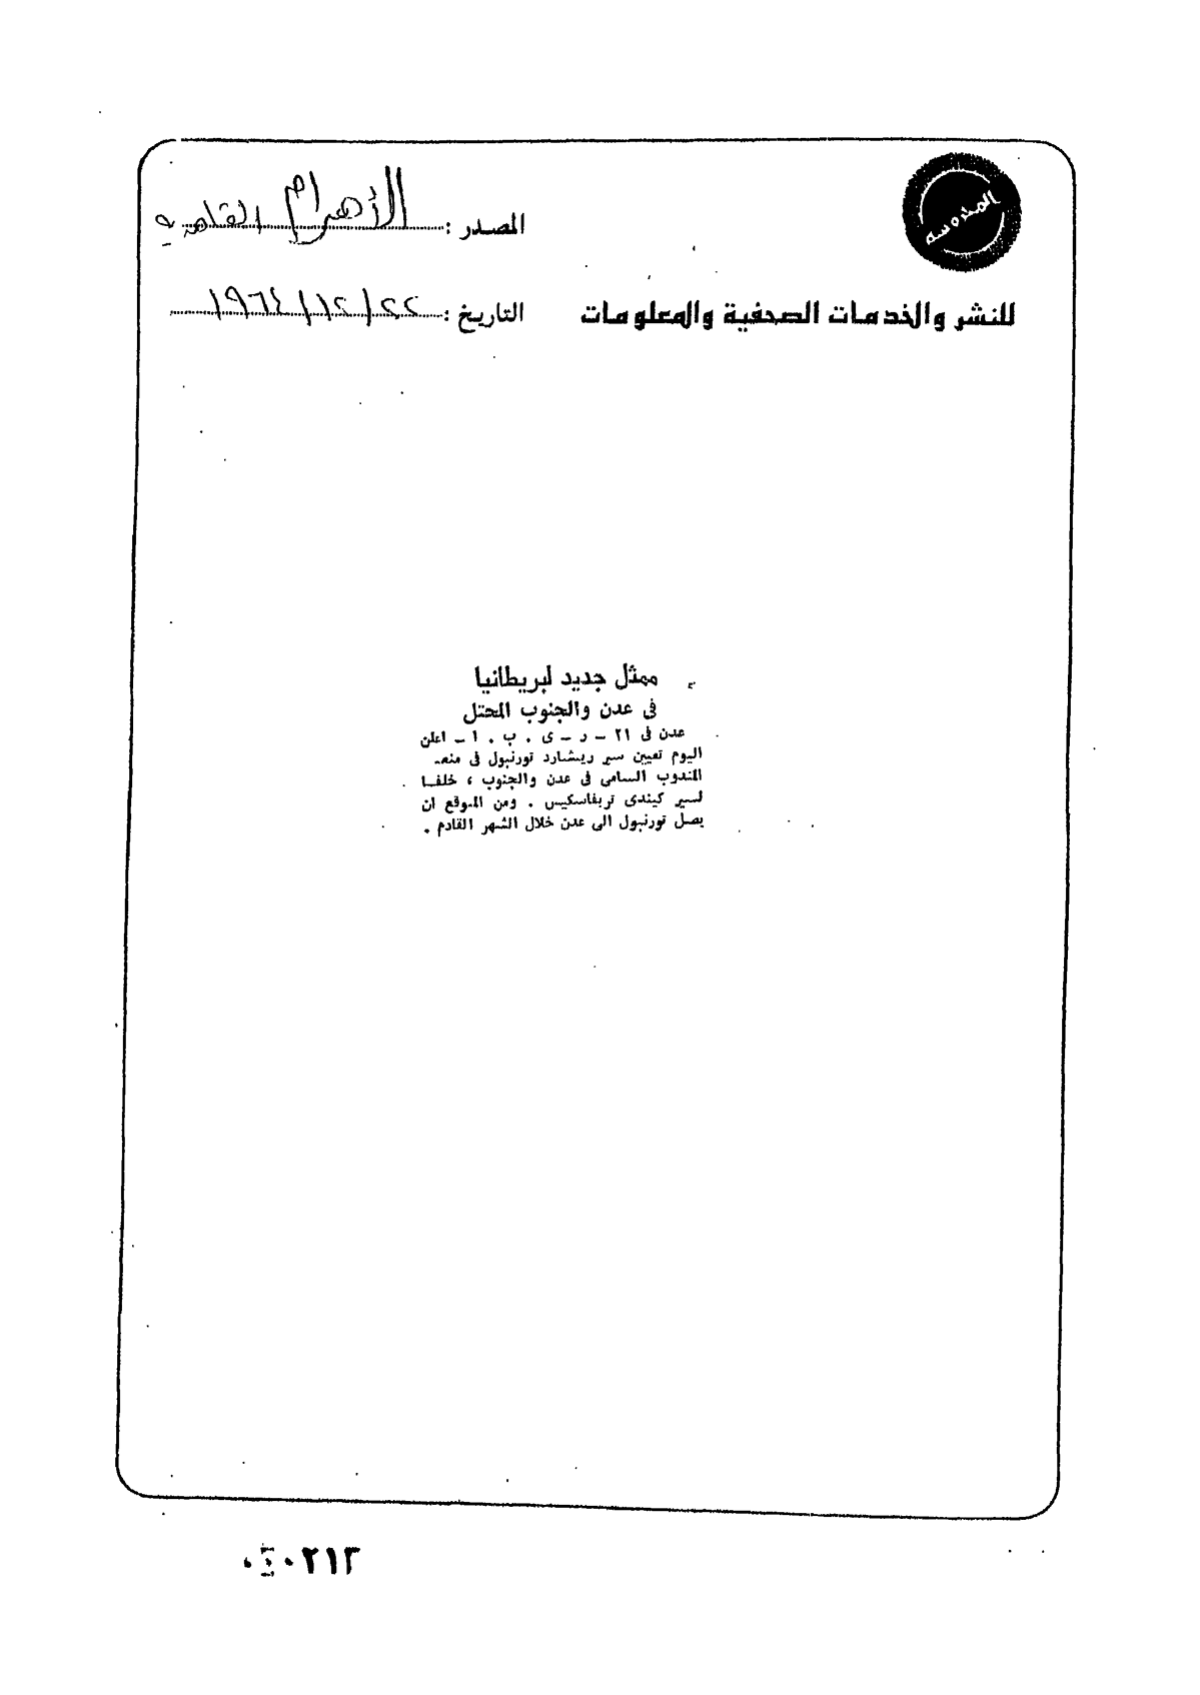 المدوسه
المصدر : الأهرام القاهرية
للنشر والخدمات الصحفية والمعلومات
التاريخ : ٢٢/١٢/١٩٦٤
ممثل جديد لبريطانيا
فى عدن والجنوب المحتل
عدن فى ٢١ – ر – ى . ب . ا – اعلن
اليوم تعيين سير ريتشارد تورنبول فى منصـ
المندوب السامى فى عدن والجنوب ، خلفـا
لسير كيندى تريفاسكيس . ومن المتوقع ان
يصل تورنبول الى عدن خلال الشهر القادم .
٢١٣